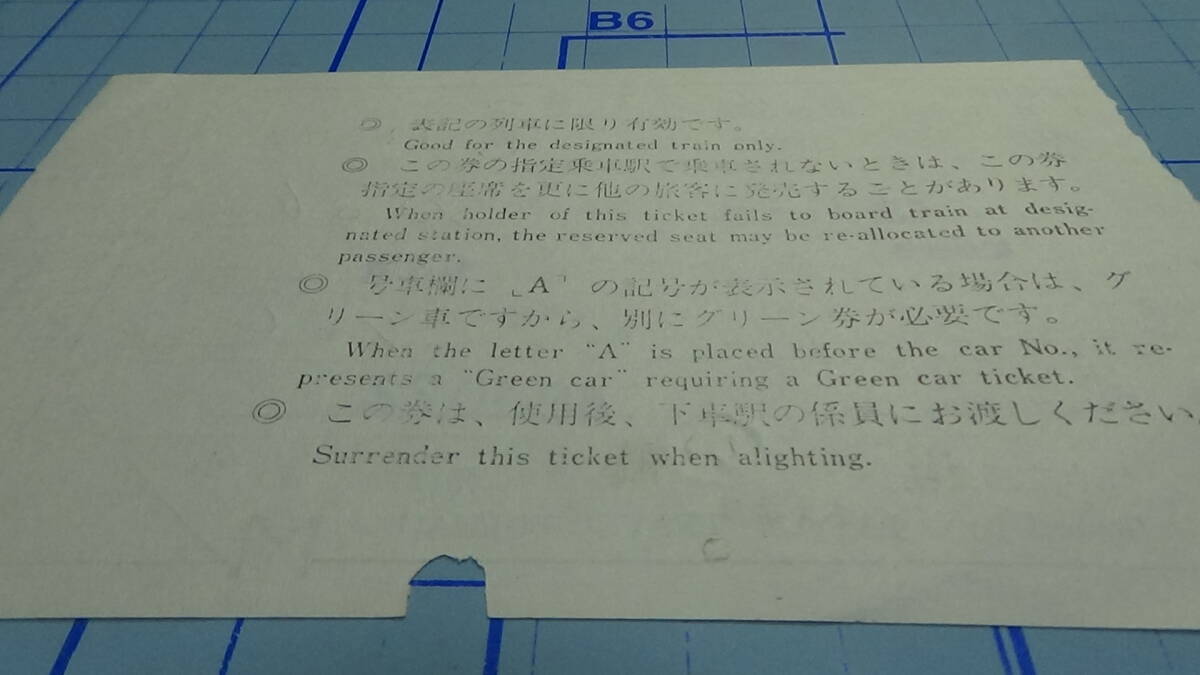 B6
◎ 表記の列車に限り有効です。
Good for the designated train only.
◎ この券の指定乗車駅で乗車されないときは、この券
指定の座席を更に他の旅客に発売することがあります。
When holder of this ticket fails to board train at desig-
nated station, the reserved seat may be re-allocated to another
passenger.
◎ 号車欄に「A」の記号が表示されている場合は、グ
リーン車ですから、別にグリーン券が必要です。
When the letter "A" is placed before the car No., it re-
presents a "Green car" requiring a Green car ticket.
◎ この券は、使用後、下車駅の係員にお渡しください。
Surrender this ticket when alighting.